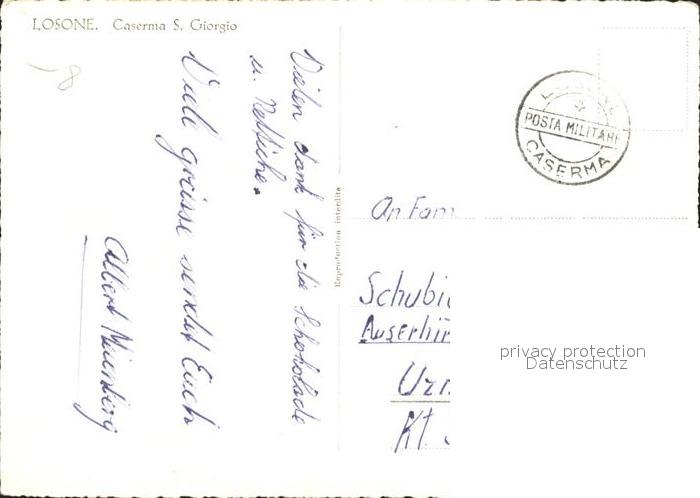 LOSONE. Caserma S. Giorgio
8
Vielen Dank für die Schokolade
u.
Viele grüsse sendet Euch
Albert
Reproduction interdite
LOSONE
POSTA MILITARE
CASERMA
An Fam
Schubi
Auserhir
Uzn
Kt.
privacy protection
Datenschutz